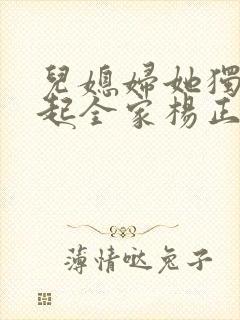 兒媳婦她獨
起全家楊正
薄情哒兔子